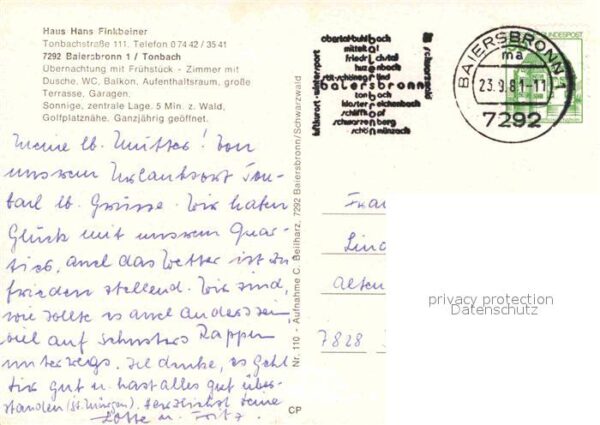 Haus Hans Finkbeiner
Tonbachstraße 111, Telefon 0 74 42 / 35 41
7292 Baiersbronn 1 / Tonbach
Übernachtung mit Frühstück - Zimmer mit
Dusche, WC, Balkon, Aufenthaltsraum, große
Terrasse, Garagen.
Sonnige, zentrale Lage. 5 Min. z. Wald,
Golfplatznähe. Ganzjährig geöffnet.
Meine lb. Mutter! Von
unserem Urlaubsort Ton-
bach lb. Grüsse. Wir haben
Glück mit unserem Quar-
tier, und das Wetter ist zu
frieden stellend. Wir sind,
wie sollte es auch anders sein,
viel auf Schusters Rappen
unterwegs. Ich denke, es geht
Dir gut u. hast alles gut über-
standen (St. Märgen). Herzlichst Deine
Lotte u. Fritz.
Nr. 110 - Aufnahme C. Beilharz, 7292 Baiersbronn/Schwarzwald
CP
obertal-buhlbach
mitteltal
friedrichstal
huzenbach
röt-schönegründ
baiersbronn
tonbach
klosterreichenbach
schliffkopf
schwarzenberg
schönmünzach
luftkurort·wintersport
schwarzwald
BAIERSBRONN 1
ma
23.9.81-11
7292
BUNDESPOST
Frau
Lind
Alten
7828
privacy protection
Datenschutz